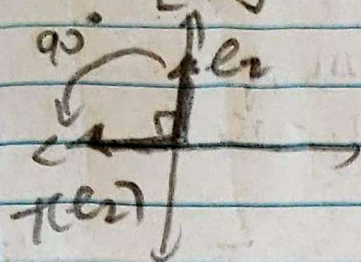 90°
e₂
T(e₂)